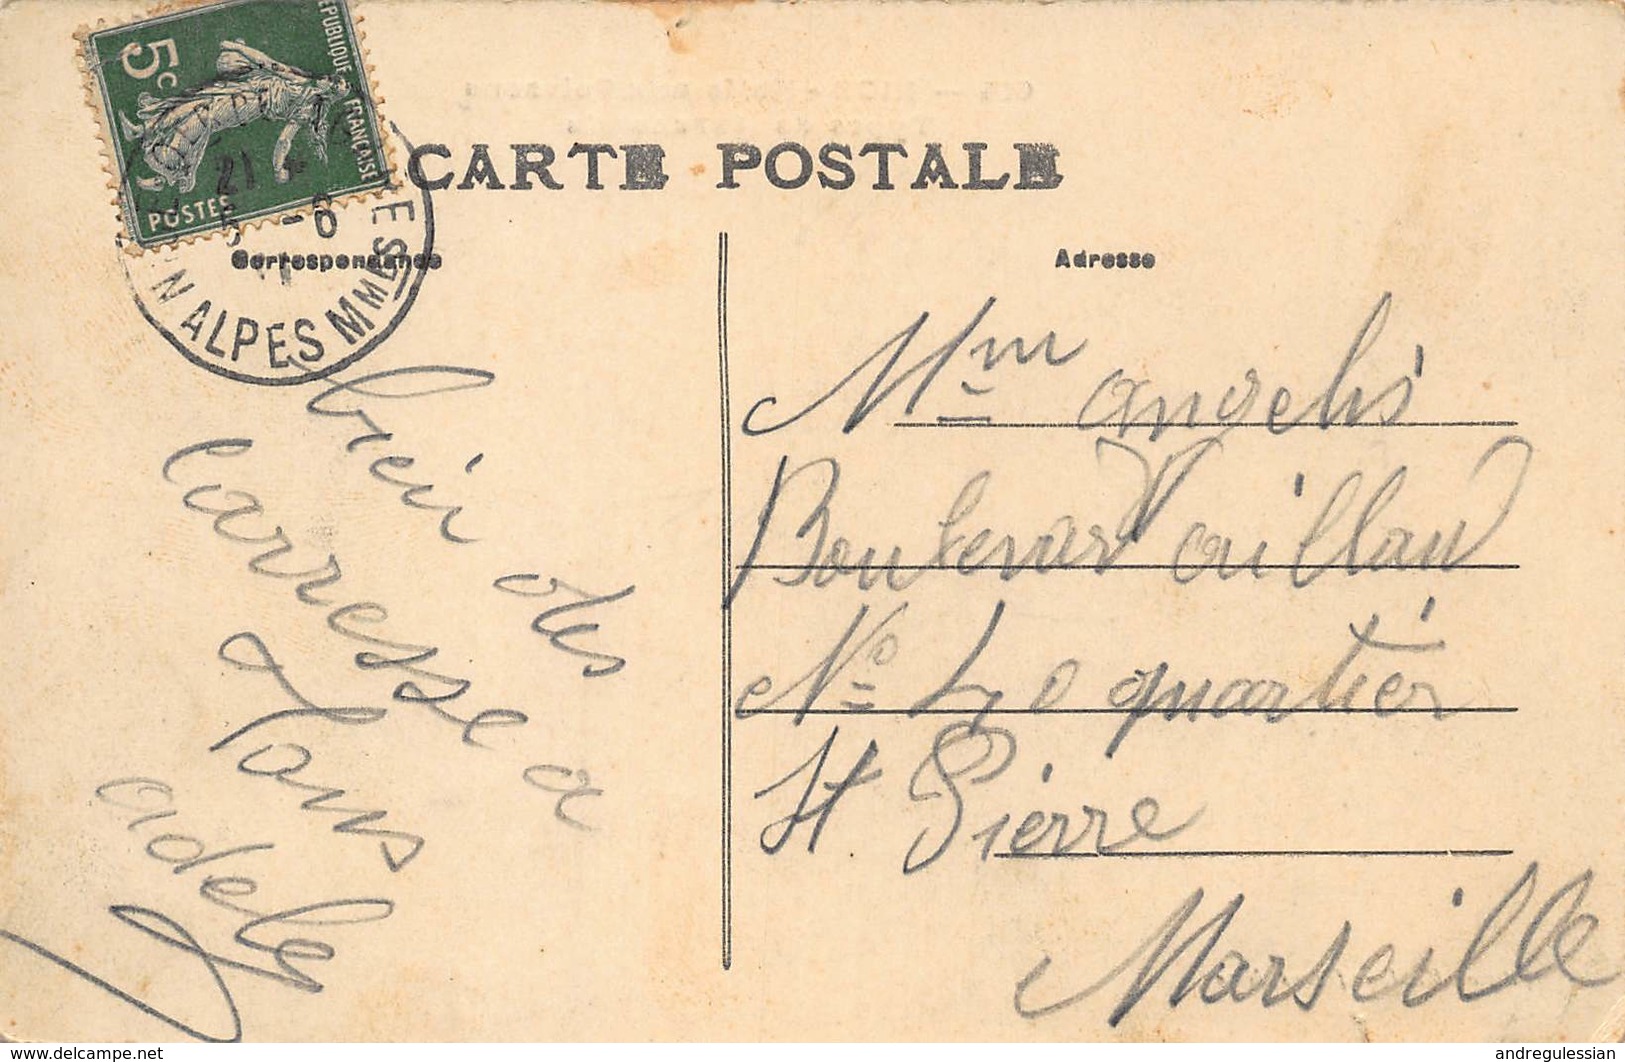 RÉPUBLIQUE FRANÇAISE
5c
POSTES
21
5 -6
N ALPES MMES
CARTE POSTALE
Correspondance
Adresse
bien des
carresse a
Tous
adele
Mme angelis
Boulevar Vaillan
No 40 quartier
St Pierre
Marseille
www.delcampe.net
andregulessian